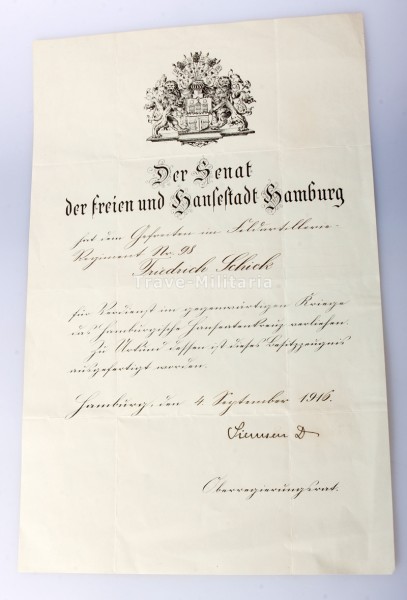 Der Senat
der freien und Hansestadt Hamburg
hat dem Gefreiten im Feldartillerie-
Regiment No. 98
Friedrich Schick
Trave-Militaria
für Verdienst im gegenwärtigen Kriege
das Hamburgische Hanseatenkreuz verliehen.
Zu Urkund dessen ist dieses Besitzzeugnis
ausgefertigt worden.
Hamburg, den 4. September 1916.
Oberregierungsrat.